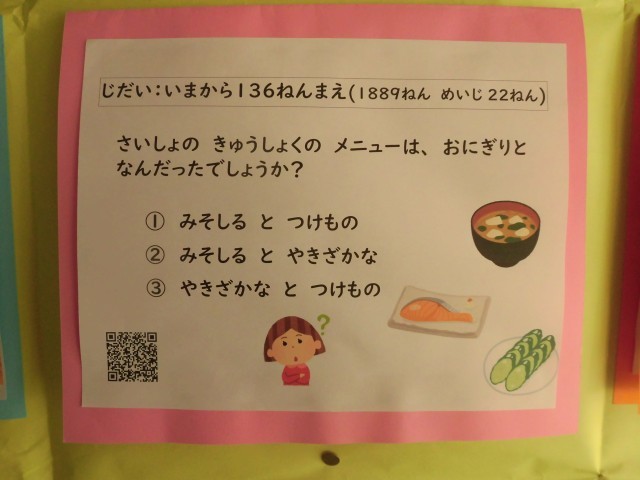 じだい：いまから136ねんまえ(1889ねん めいじ22ねん)
さいしょの きゅうしょくの メニューは、おにぎりと
なんだったでしょうか？
① みそしる と つけもの
② みそしる と やきざかな
③ やきざかな と つけもの
?